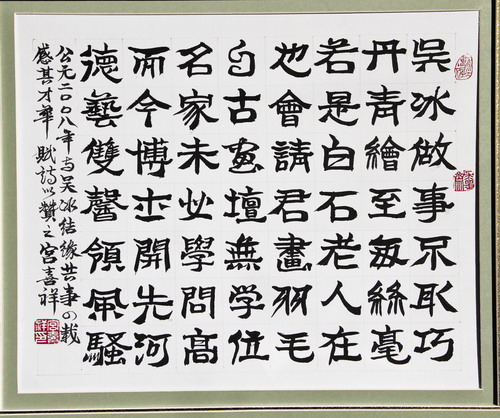 吳冰做事不取巧
丹青繪至每絲毫
若是白石老人在
也會請君畫羽毛
自古画壇無学位
名家未必學問高
而今博士開先河
德藝雙馨領風騷
公元二〇〇八年与吴冰结缘共事四载
感其才華賦詩以赞之宫喜祥